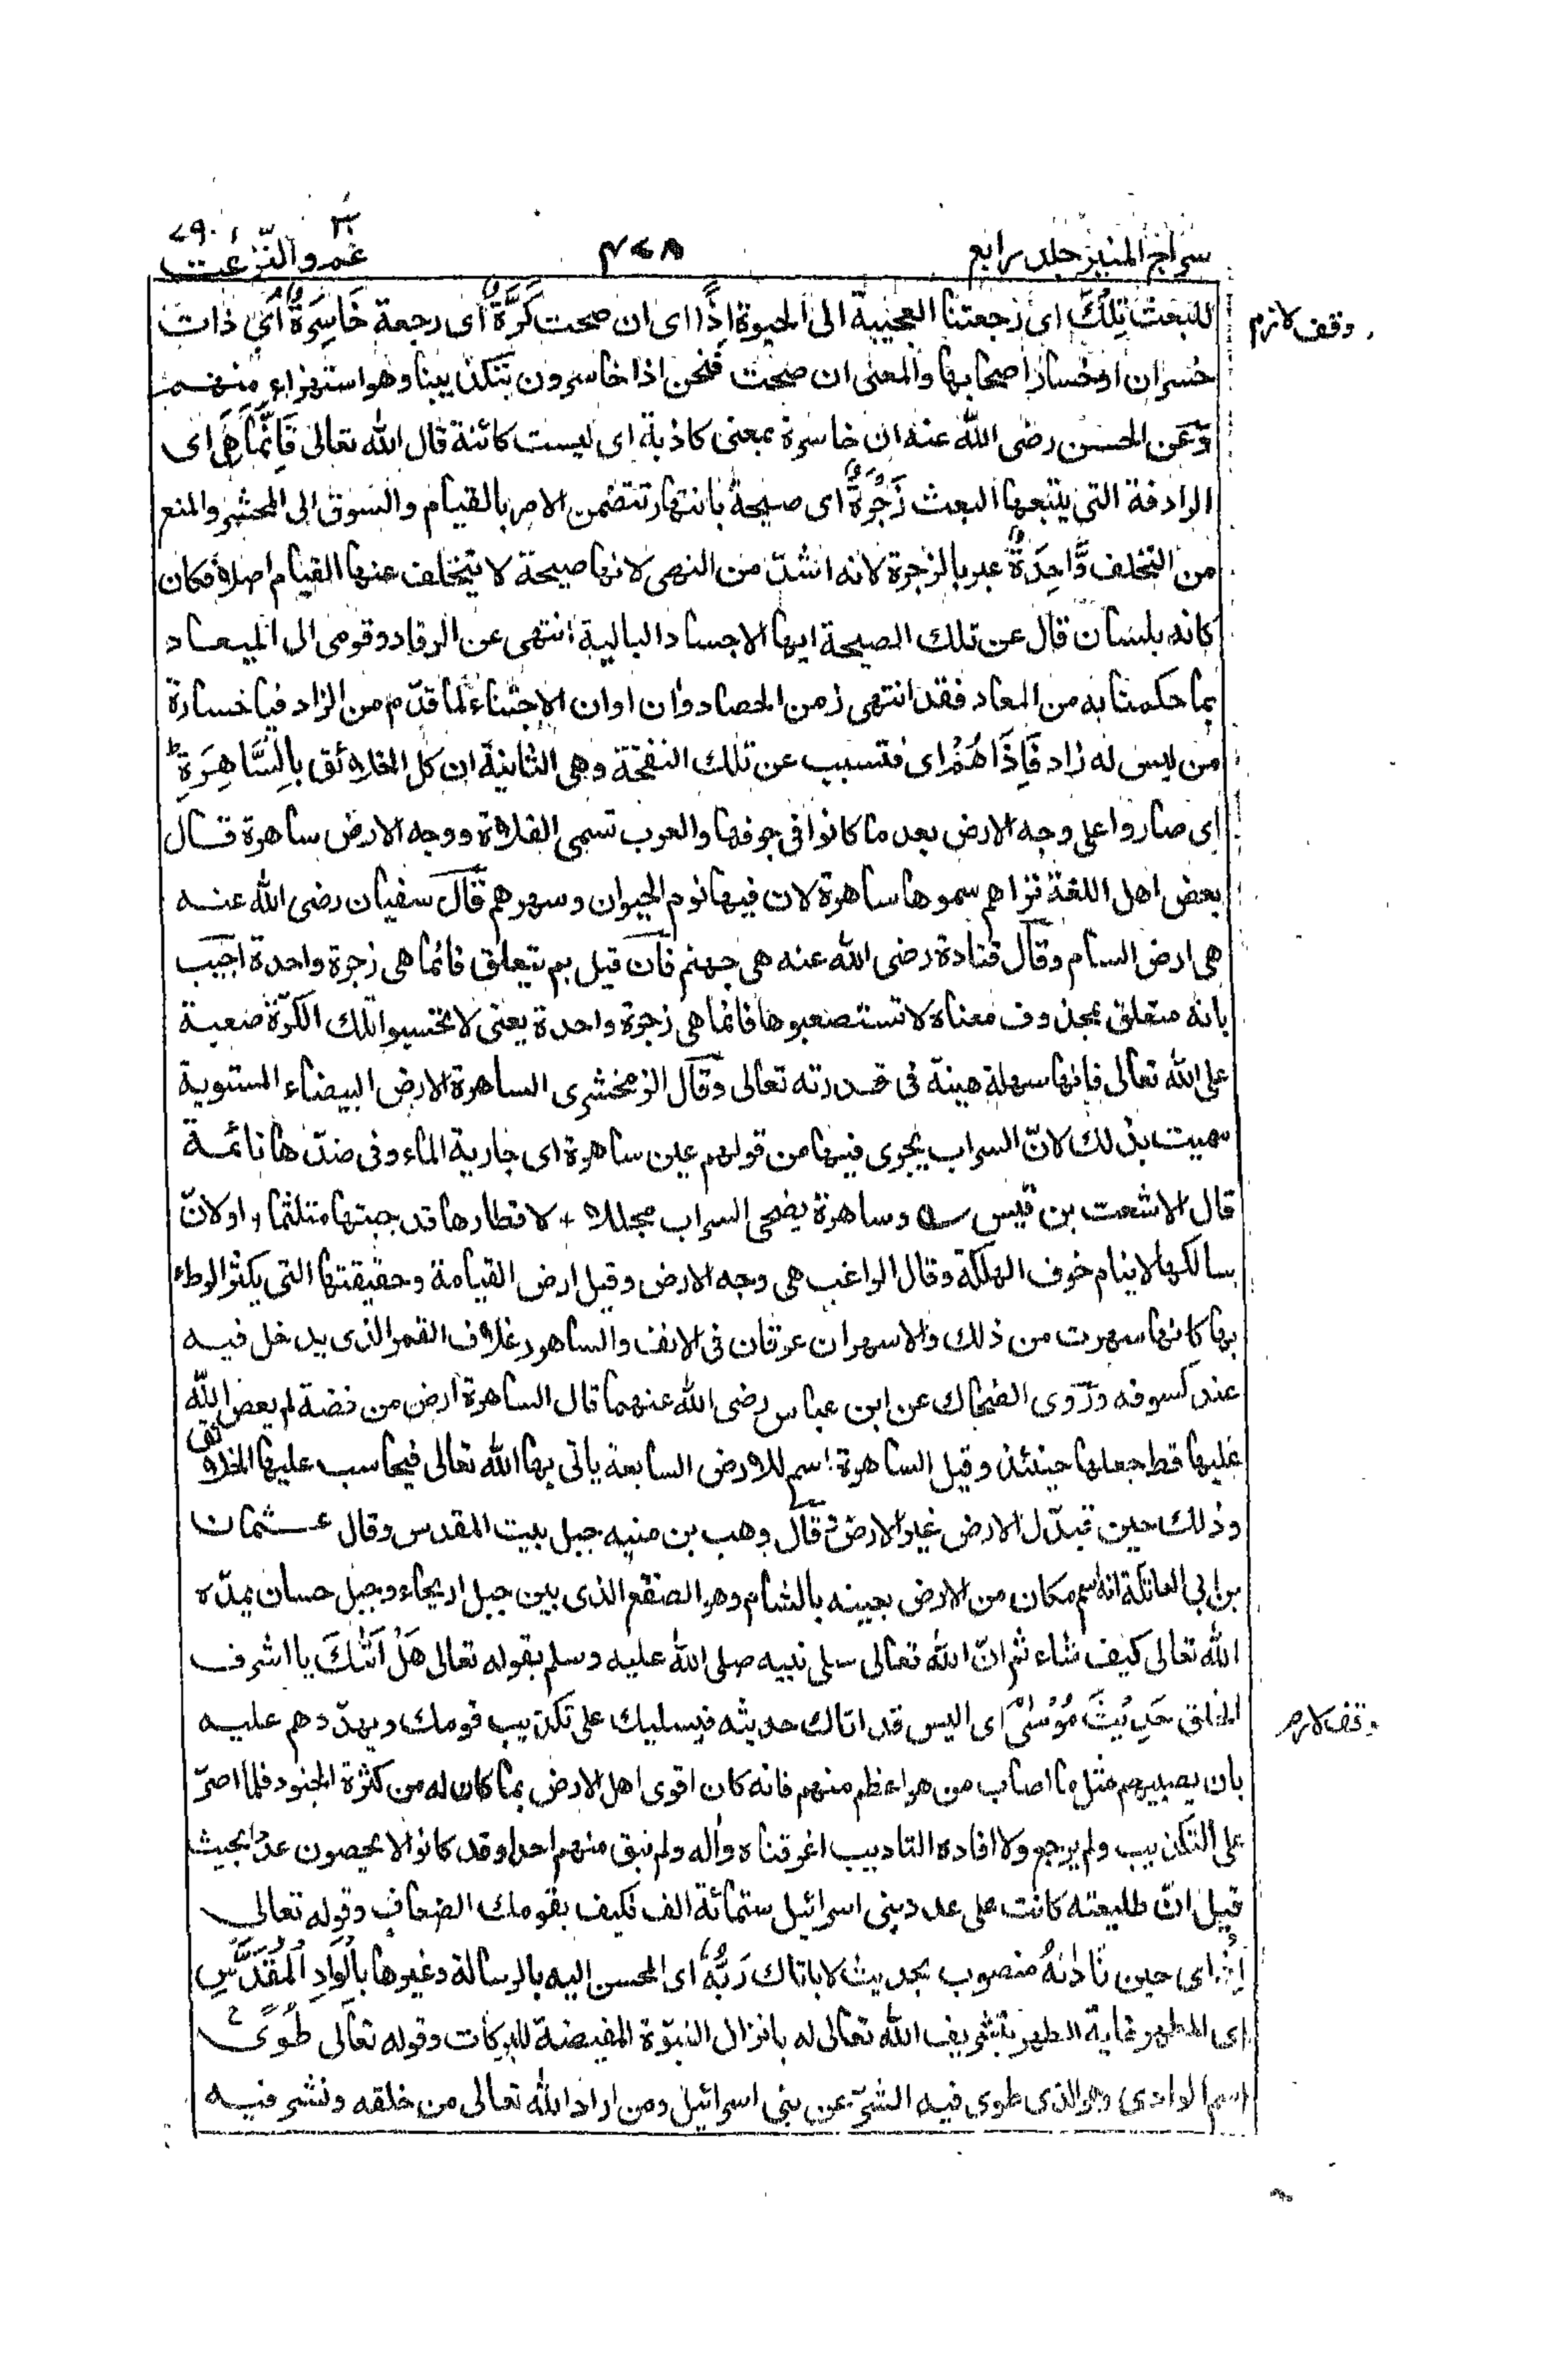 سراج المنير جلد رابع
٤٧٨
عم والنّزعت
٣٠
٧٩
وقف لازم
للبعث تِلْكَ اى رجعتنا العجيبة الى الحيوة اِذًا اى ان صحت كَرَّةٌ اى رجعة خَاسِرَةٌ اى ذات
خسران او خسارا صحابها والمعنى ان صحت فنحن اذا خاسرون بتكذيبنا وهو استهزاء منهم
وعن الحسن رضى الله عنه ان خاسرة بمعنى كاذبة اى ليست كائنة قال الله تعالى فَاِنَّمَا هِىَ اى
الرادفة التى يتبعها البعث زَجْرَةٌ اى صيحة بانتهار تتضمن الامر بالقيام والسوق الى المحشر والمنع
من التخلف وَّاحِدَةٌ عبر بالزجرة لانه اشدّ من النهى لانها صيحة لا يتخلف عنها القيام اصلا فكان
كانه بلسان قال عن تلك الصيحة ايها الاجساد البالية انتهى عن الرقاد وقومى الى الميعاد
بما حكمنا به من المعاد فقد انتهى زمن الحصاد وان اوان الاجتناء لما قدّم من الزاد فيا خسارة
من ليس له زاد فَاِذَا هُمْ اى فتسبب عن تلك النفخة وهى الثانية ان كل الخلائق بِالسَّاهِرَةِ ط
اى صاروا على وجه الارض بعد ما كانوا فى جوفها والعرب تسمى الفلاة ووجه الارض ساهرة قال
بعض اهل اللغة تراهم سموها ساهرة لان فيها نوم الحيوان وسهرهم قال سفيان رضى الله عنه
هى ارض الشام وقال قتادة رضى الله عنه هى جهنم فان قيل بم يتعلق فانما هى زجرة واحدة اجيب
بانه متعلق بمحذوف معناه لا تستصعبوها فانما هى زجرة واحدة يعنى لا تحسبوا تلك الكرّة صعبة
على الله تعالى فانها سهلة هينة فى قدرته تعالى وقال الزمخشرى الساهرة الارض البيضاء المستوية
سميت بذلك لانّ السراب يجرى فيها من قولهم عين ساهرة اى جارية الماء وفى ضدّها نائمة
قال الاشعث بن قيس وساهرة يضحى السراب مجللا + لاقطارها قد جبتها متلثما، اولانّ
سالكها لا ينام خوف الهلكة وقال الراغب هى وجه الارض وقيل ارض القيامة وحقيقتها التى يكثر الوطء
بها كانها سهرت من ذلك والاسهران عرقان فى الانف والساهور غلاف القمر الذى يدخل فيه
عند كسوفه وروى الضحاك عن ابن عباس رضى الله عنهما قال الساهرة ارض من فضة لم يعص الله
عليها قط جعلها حينئذ وقيل الساهرة اسم للارض السابعة ياتى بها الله تعالى فيحاسب عليها الخلائق
وذلك حين تبدّل الارض غير الارض قال وهب بن منبه جبل بيت المقدس وقال عثمان
بن ابى العاتكة انه اسم مكان من الارض بعينه بالشام وهو الصقع الذى بين جبل اريحاء وجبل حسان يمدّه
الله تعالى كيف شاء ثم انّ الله تعالى سلى نبيه صلى الله عليه وسلم بقوله تعالى هَلْ اَتٰكَ يا اشرف
الخلق حَدِيْثُ مُوْسٰى اى اليس قد اتاك حديثه فيسليك على تكذيب قومك ويهدّدهم عليه
وقف لازم
بان يصيبهم مثل ما اصاب من هو اعظم منهم فانه كان اقوى اهل الارض بما كان له من كثرة الجنود فلما اصرّ
على التكذيب ولم يرجع ولا افاده التاديب اغرقناه واله ولم نبق منهم احدا وقد كانوا لا يحصون عدا بحيث
قيل انّ طليعته كانت على عدد بنى اسرائيل ستمائة الف فكيف بقومك الضعاف وقوله تعالى
اِذْ اى حين نَادٰىهُ منصوب بحديث لا باتاك رَبُّهٗ اى المحسن اليه بالرسالة وغيرها بِالْوَادِ الْمُقَدَّسِ
اى المطهر غاية الطهر بتشريف الله تعالى له بانزال النبوّة المفيضة للبركات وقوله تعالى طُوًى ج
اسم الوادى وهو الذى طوى فيه الشرّ عن بنى اسرائيل ومن اراد الله تعالى من خلقه ونشر فيه